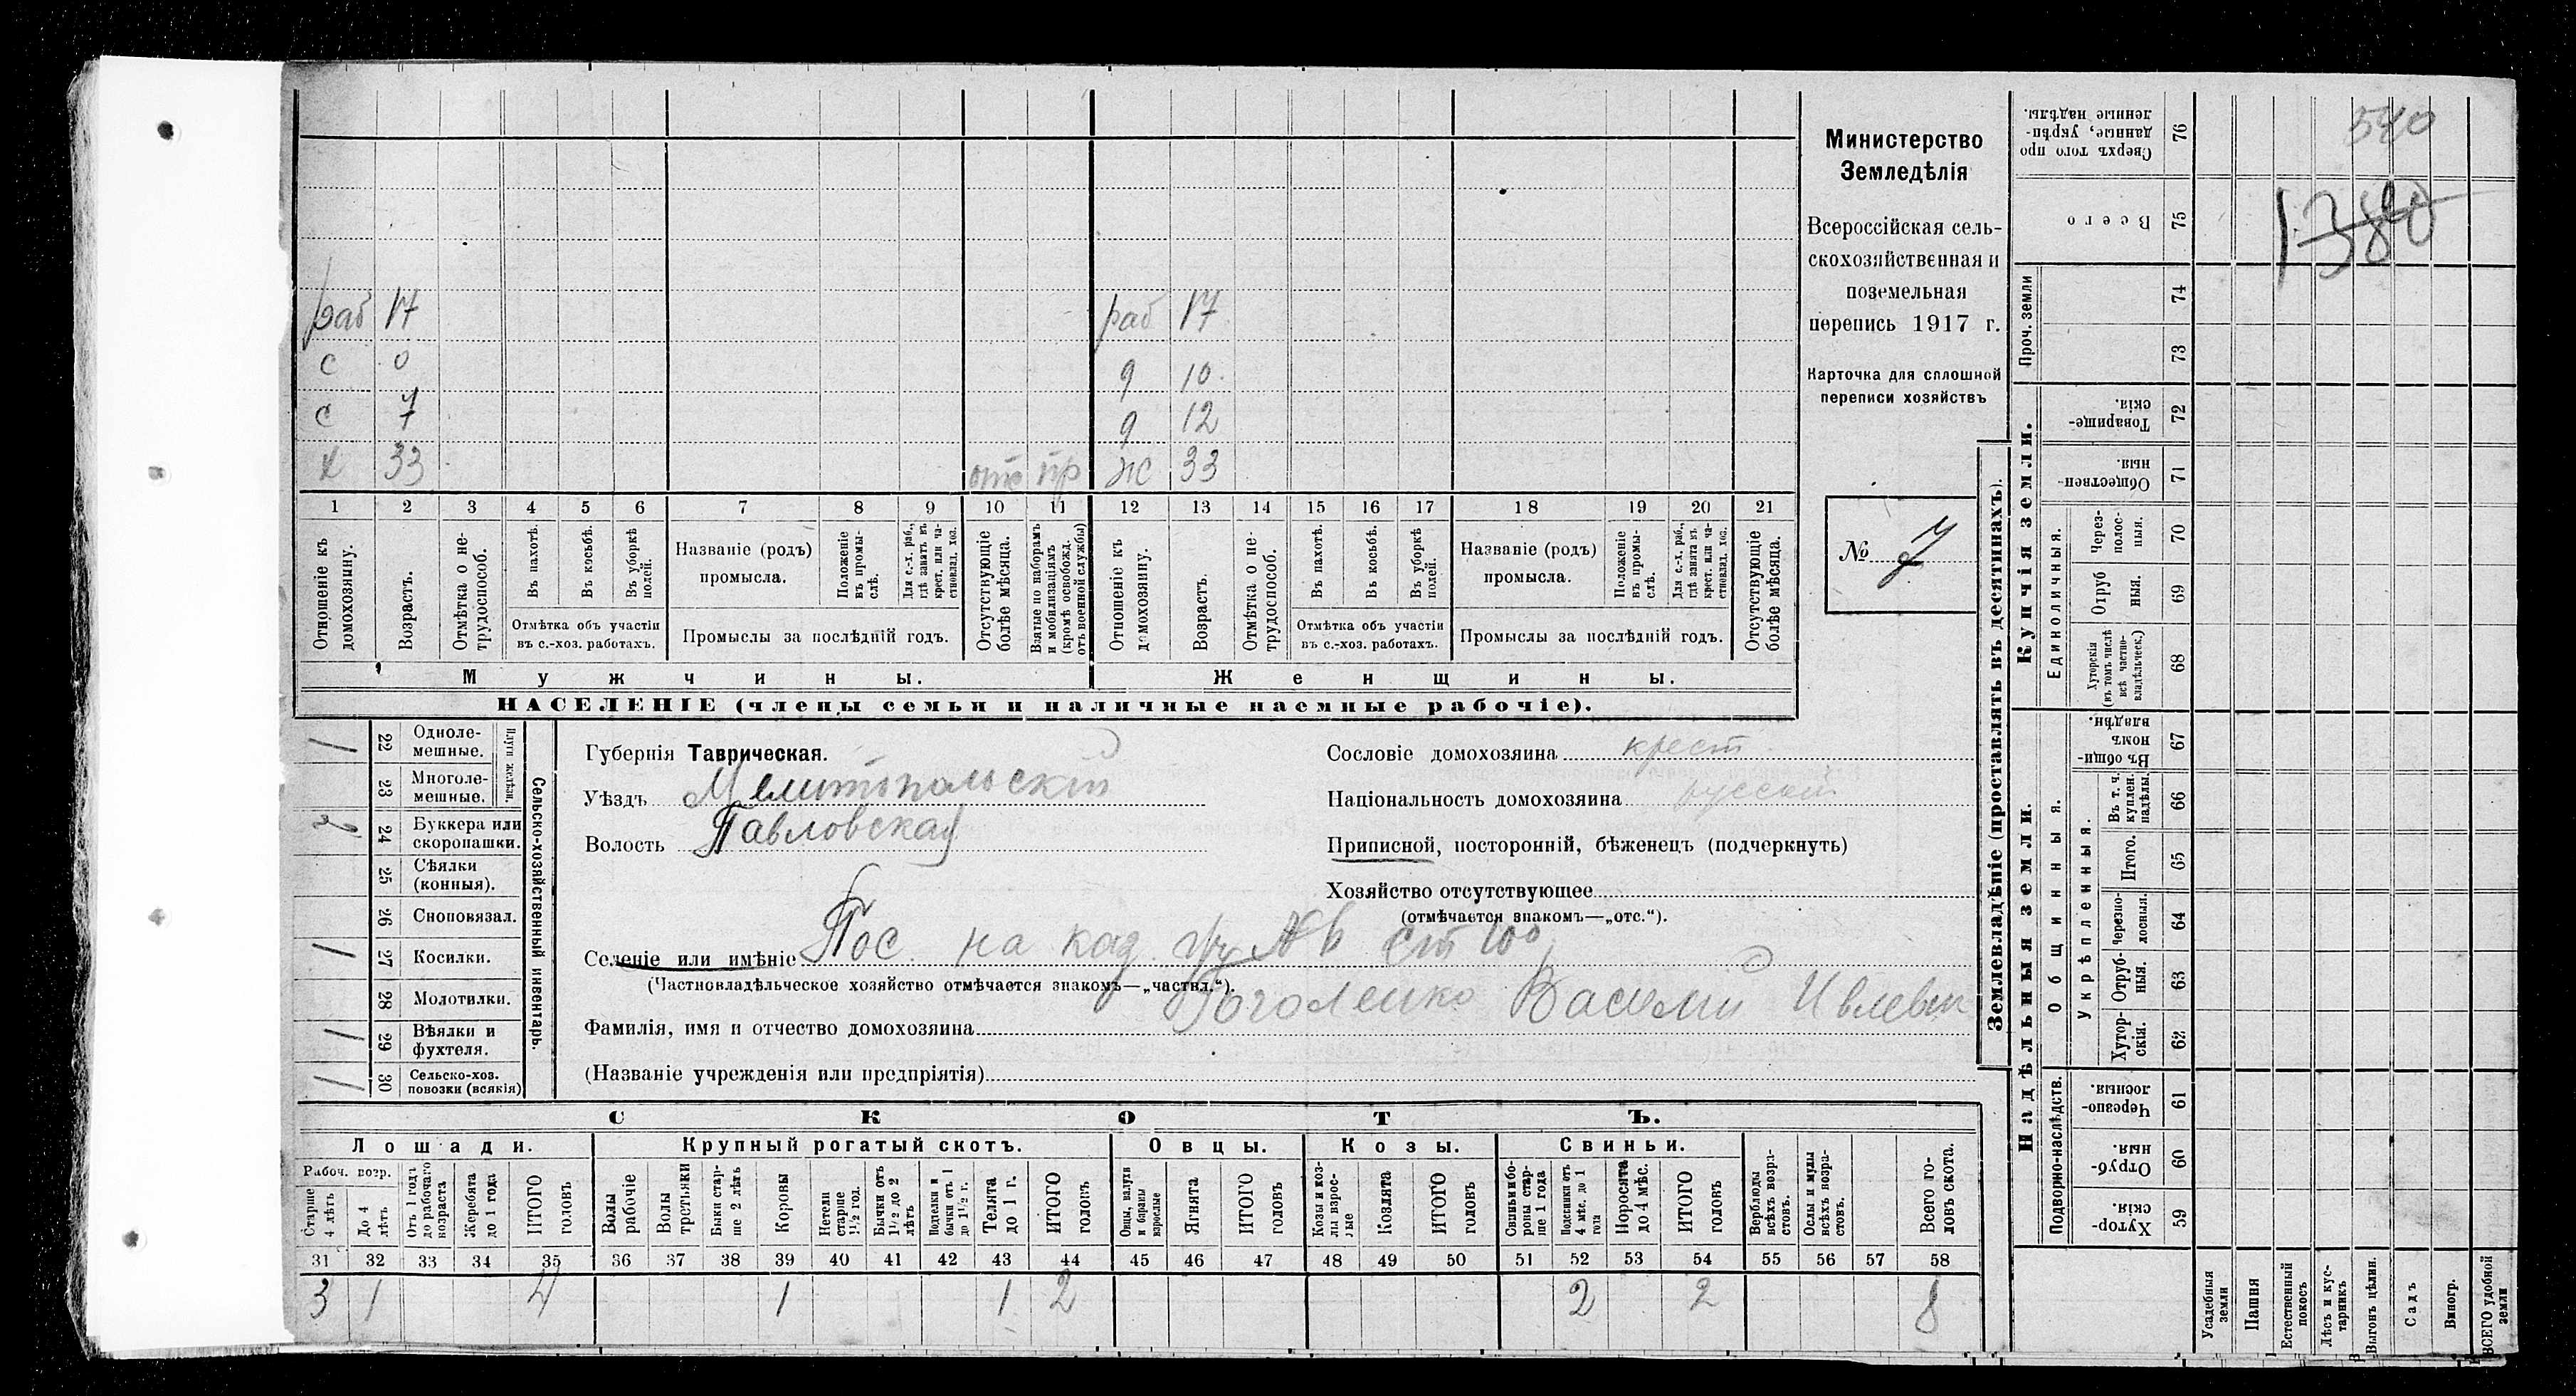 раб 17 раб 17
с 0 9 10
с 7 9 12
х 33 отс пр ж 33
1 2 3 4 5 6 7 8 9 10 11 12 13 14 15 16 17 18 19 20 21
Отношеніе къ домохозяину.
Возрастъ.
Отмѣтка о не-трудоспособ.
Въ пахотѣ.
Въ косьбѣ.
Въ уборкѣ полей.
Отмѣтка объ участіи
въ с.-хоз. работахъ.
Названіе (родъ)
промысла.
Положеніе въ промы-слѣ.
Для с.-х. раб., гдѣ занятъ въ крест. или ча-стновлад. хоз.
Промыслы за послѣдній годъ.
Отсутствующіе болѣе мѣсяца.
Взятые по наборамъ и мобилизаціямъ (кромѣ освобожд. отъ военной службы)
Отношеніе къ домохозяину.
Возрастъ.
Отмѣтка о не-трудоспособ.
Въ пахотѣ.
Въ косьбѣ.
Въ уборкѣ полей.
Отмѣтка объ участіи
въ с.-хоз. работахъ.
Названіе (родъ)
промысла.
Положеніе въ промы-слѣ.
Для с.-х. раб., гдѣ занята въ крест. или ча-стновлад. хоз.
Промыслы за послѣдній годъ.
Отсутствующіе болѣе мѣсяца.
Мужчины. Женщины.
НАСЕЛЕНІЕ (члены семьи и наличные наемные рабочіе).
Министерство
Земледѣлія
Всероссійская сель-
скохозяйственная и
поземельная
перепись 1917 г.
Карточка для сплошной
переписи хозяйствъ
№ 7
Сельско-хозяйственный инвентарь.
Плуги желѣзн.
1 22 Одноле-мешные.
23 Многоле-мешные.
2 24 Буккера или скоропашки.
25 Сѣялки (конныя).
26 Сноповязал.
1 27 Косилки.
28 Молотилки.
1 29 Вѣялки и фухтеля.
30 Сельско-хоз. повозки (всякія)
Губернія Таврическая.
Уѣздъ Мелитопольскій
Волость Павловская
Сословіе домохозяина крест
Національность домохозяина русский
Приписной, посторонній, бѣженецъ (подчеркнуть)
Хозяйство отсутствующее
(отмѣчается знакомъ—„отс.“).
Селеніе или имѣніе Пос на кад.
(Частновладѣльческое хозяйство отмѣчается знакомъ—„частвл.“).
Фамилія, имя и отчество домохозяина Василій
(Названіе учрежденія или предпріятія)
СКОТЪ.
Лошади. Крупный рогатый скотъ. Овцы. Козы. Свиньи.
Рабоч. возр.
Старше 4 лѣтъ
До 4 лѣтъ
Отъ 1 годъ до рабочаго возраста
Жеребята до 1 года
ИТОГО головъ
Волы рабочіе
Волы третьяки
Быки стар-ше 2 лѣтъ
Коровы
Нетели старше 1½ год.
Бычки отъ 1½ до 2 лѣтъ
Подтелки и бычки отъ 1 до 1½ г.
Телята до 1 г.
ИТОГО головъ
Овцы, валухи и бараны взрослые
Ягнята
ИТОГО головъ
Козы и коз-лы взрос-лые
Козлята
ИТОГО головъ
Свиньи и бо-ровы стар-ше 1 года
Подсвинки отъ 4 мѣс. до 1 года
Поросята до 4 мѣс.
ИТОГО головъ
Верблюды всѣхъ возра-стовъ.
Ослы и мулы всѣхъ возра-стовъ.
Всего го-ловъ скота.
31 32 33 34 35 36 37 38 39 40 41 42 43 44 45 46 47 48 49 50 51 52 53 54 55 56 57 58
3 1 4 1 1 2 2 2 8
Землевладѣніе (проставлять въ десятинахъ).
Сверхъ того про-данные, укрѣп-ленные надѣлы. 76 540
Всего 75
Проч. земли 74
73
Купчія земли.
Товарище-скія. 72
Обществен-ныя 71
Единоличныя.
Через-полос-ныя. 70
Отруб-ныя. 69
Хуторскія (въ томъ числѣ всѣ частно-владѣльческ.) 68
Надѣльныя земли.
Общинныя.
Въ общин-номъ владѣн. 67
Укрѣпленныя.
Въ т. ч. куплен. надѣлы. 66
Итого. 65
Черезпо-лосныя. 64
Отруб-ныя. 63
Хутор-скія. 62
Подворно-наслѣдств.
Черезпо-лосныя. 61
Отруб-ныя. 60
Хутор-скія 59
Усадебныя земли
Пашня
Естественный покосъ
Лѣсъ и кус-тарникъ
Выгонъ цѣлин.
Садъ
Виногр.
ВСЕГО удобной земли